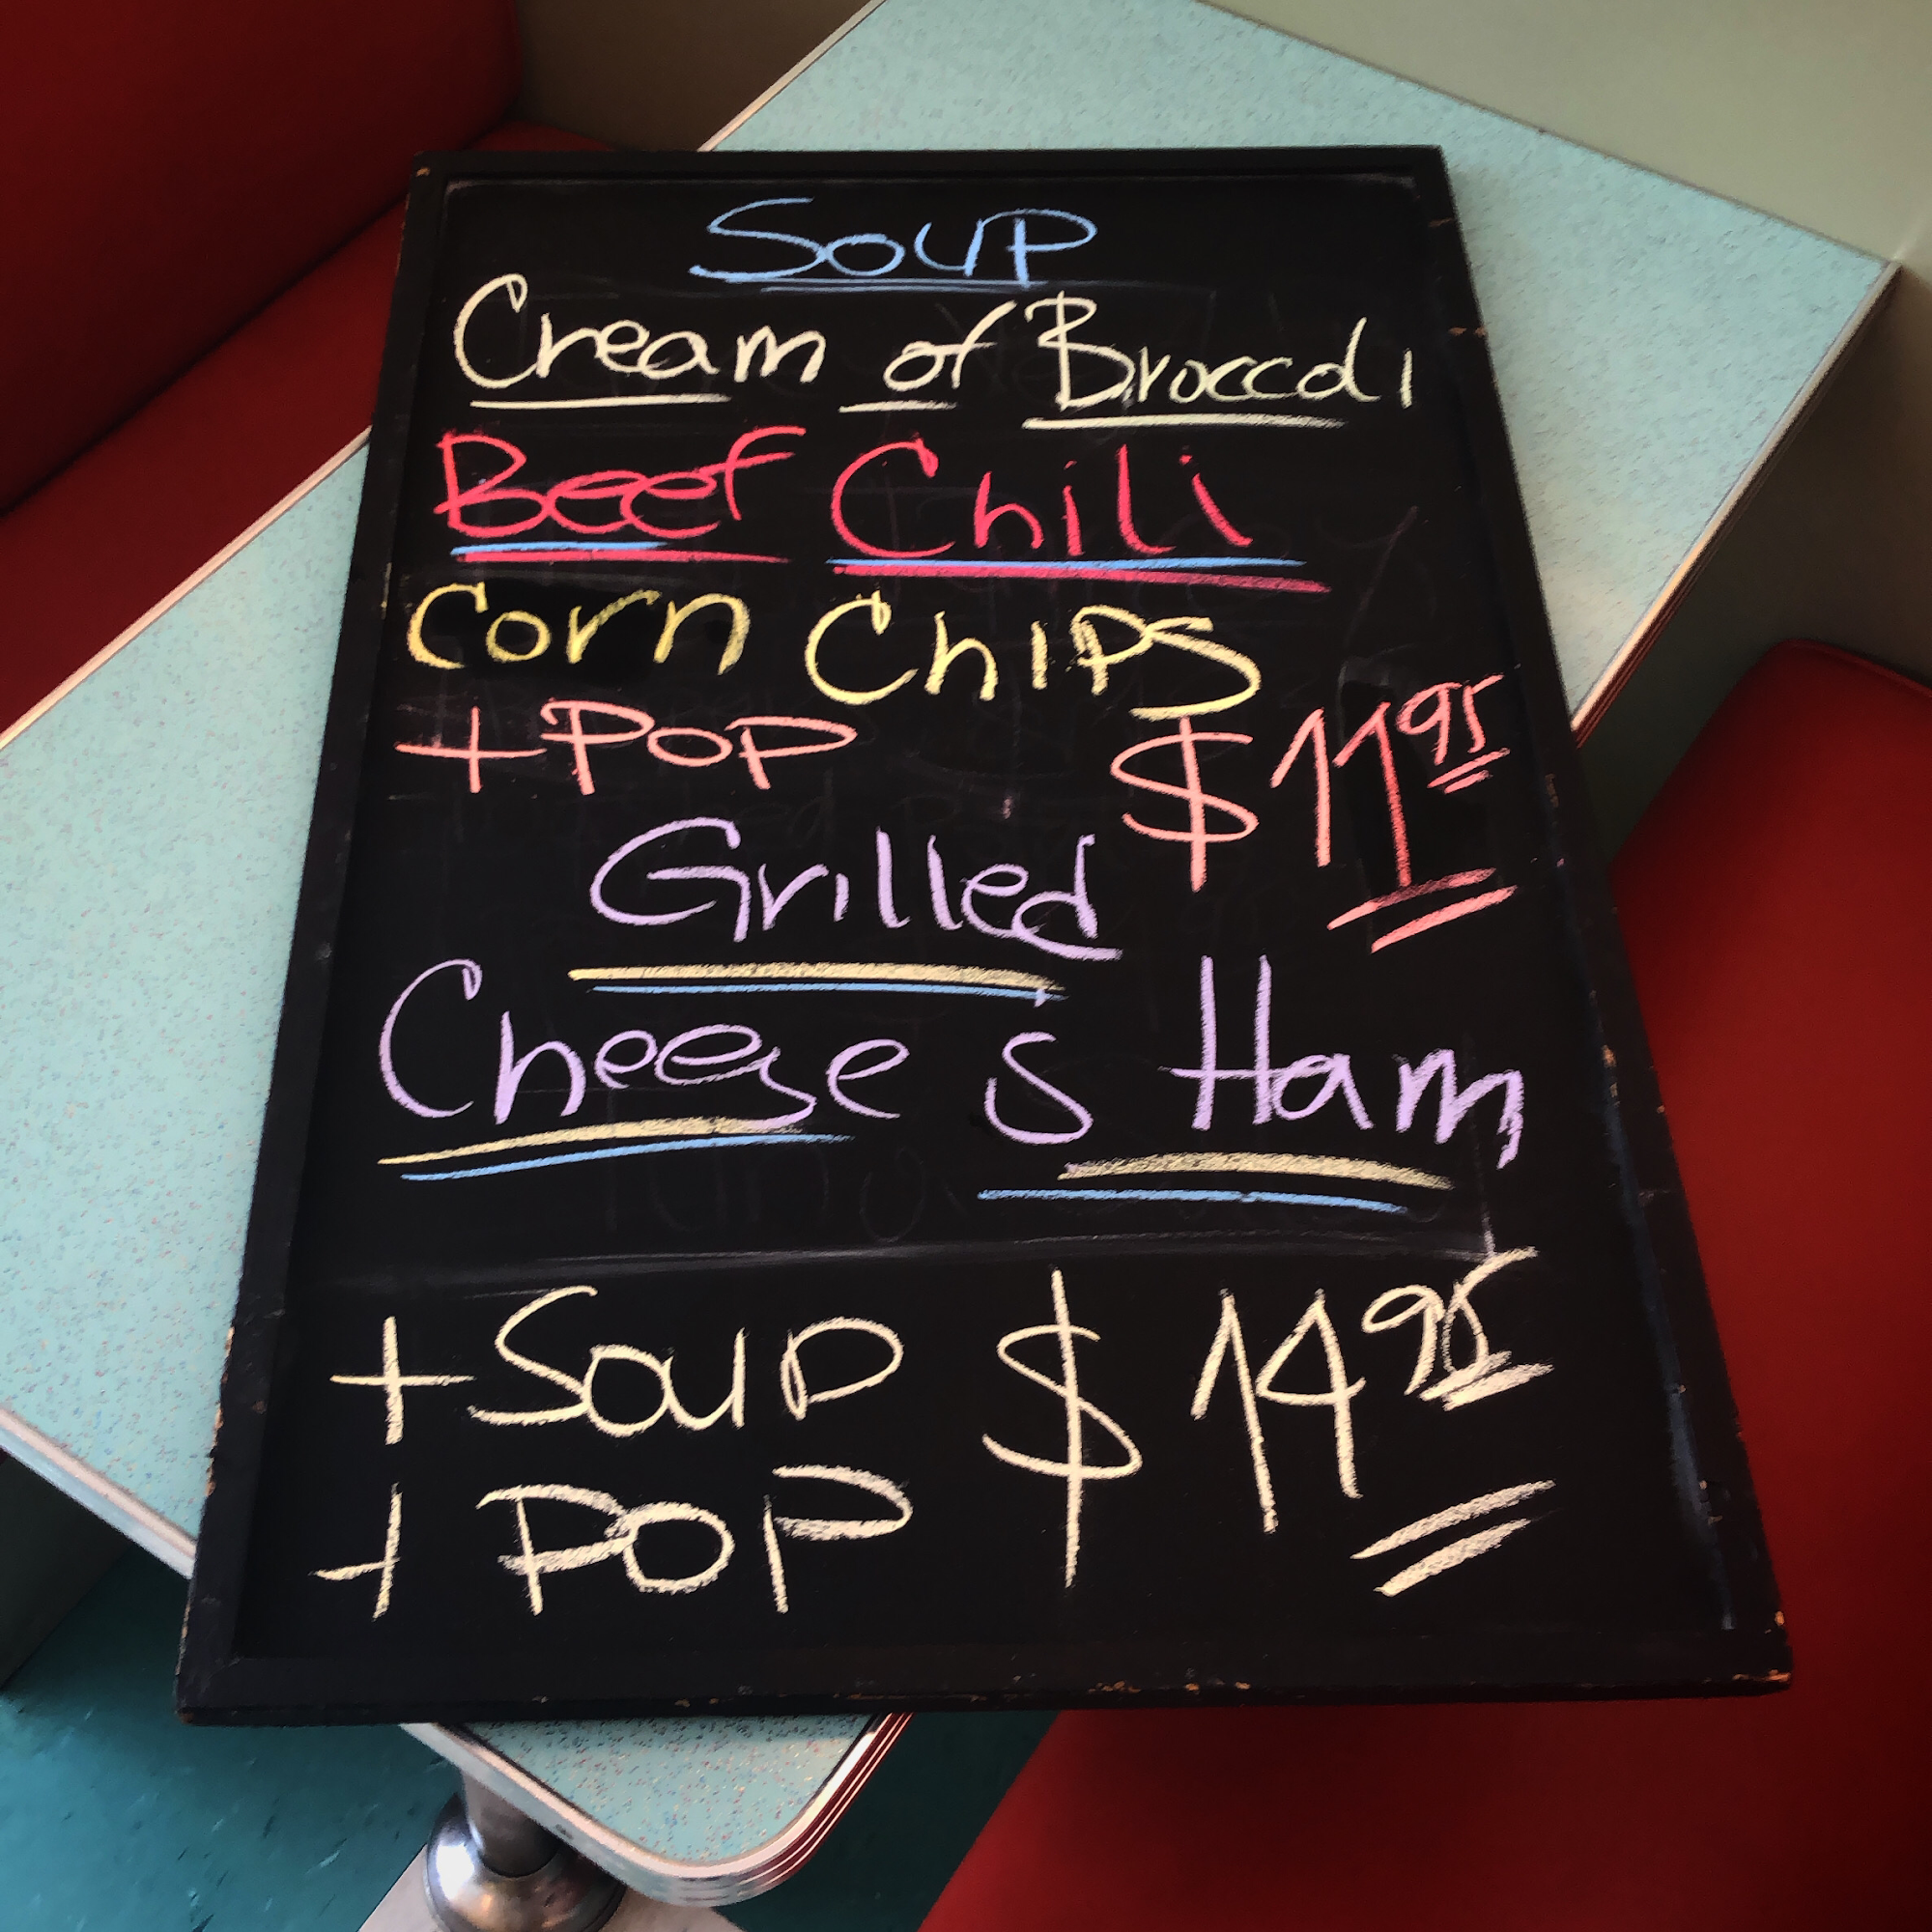 Soup
Cream of Broccoli
Beef Chili
Corn Chips
+ Pop $11.95
Grilled
Cheese & Ham
+ Soup $14.95
+ Pop